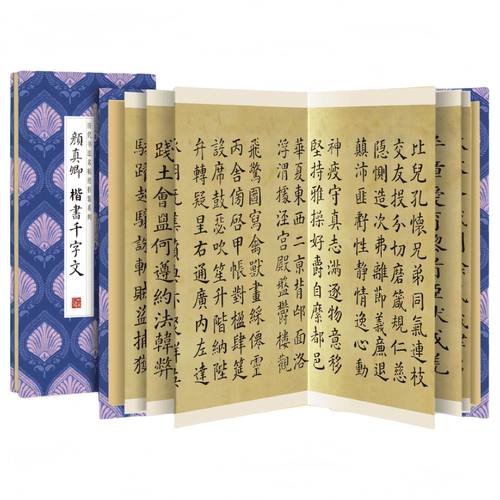 顏真卿 楷書千字文
比兒孔懷兄弟同氣連枝
交友投分切磨箴規仁慈
隱惻造次弗離節義廉退
顛沛匪虧性靜情逸心動
神疲守真志滿逐物意移
堅持雅操好爵自縻都邑
華夏東西二京背邙面洛
浮渭據涇宮殿盤鬱樓觀
飛驚圖寫禽獸畫綵僊靈
丙舍傍啓甲帳對楹肆筵
設席鼓瑟吹笙升階納陛
弁轉疑星右通廣内左達
踐土會盟何遵約法韓弊
駭躍超驤誅斬賊盜捕獲